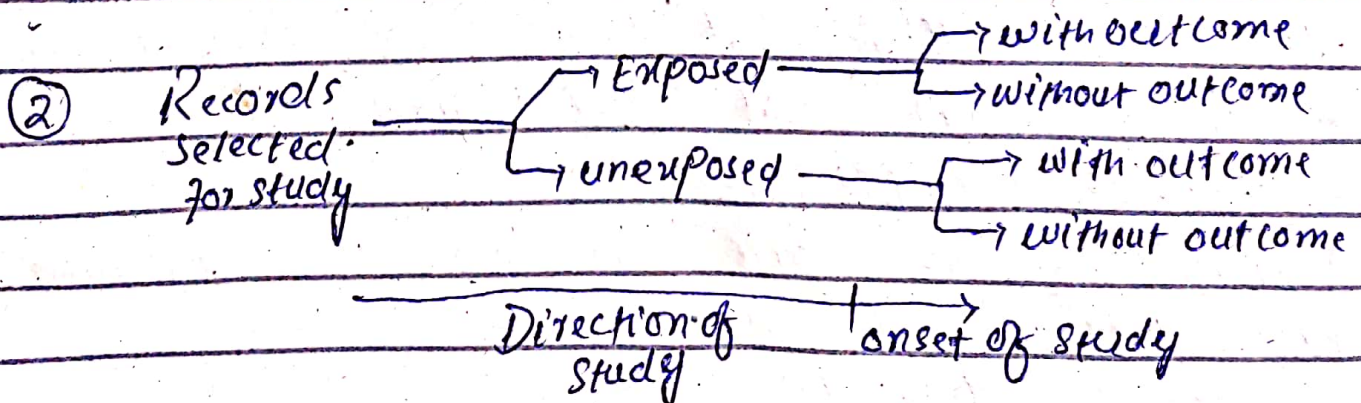 ② Records
selected
for study
→ Exposed
→ with outcome
→ without outcome
→ unexposed
→ with outcome
→ without outcome
Direction of
study
onset of study